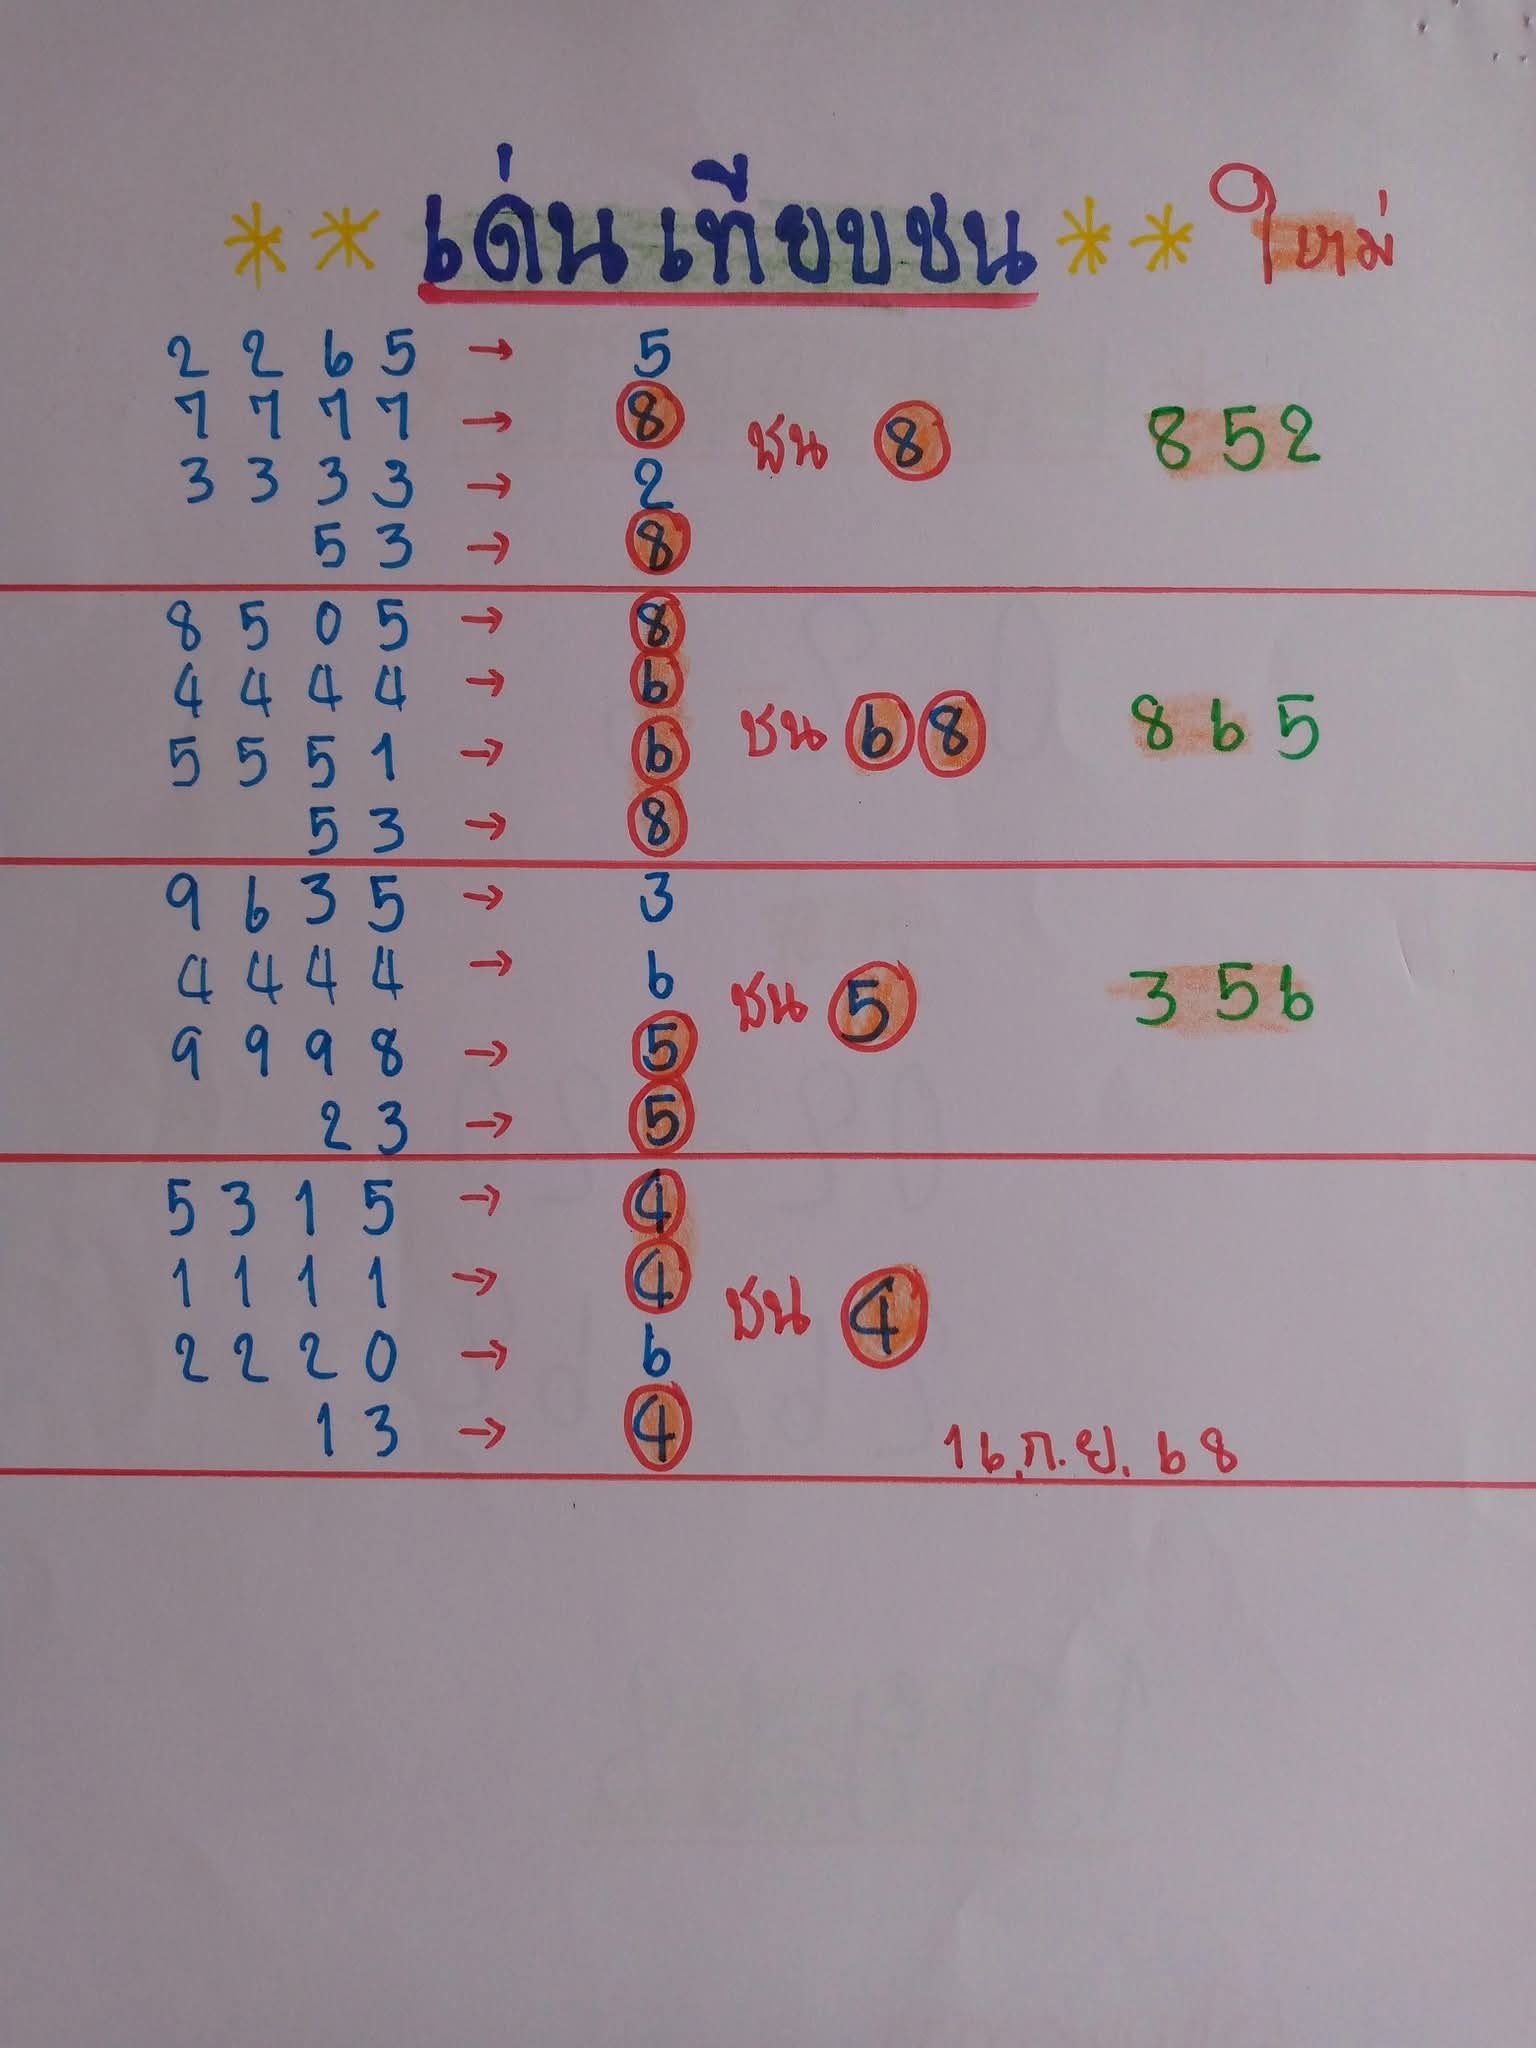 ** เด่นเทียบชน ** ใหม่
2 2 6 5 → 5
7 7 7 7 → 8
ชน 8 852
3 3 3 3 → 2
5 3 → 8
8 5 0 5 → 8
4 4 4 4 → 6
ชน 6 8 865
5 5 5 1 → 6
5 3 → 8
9 6 3 5 → 3
4 4 4 4 → 6
ชน 5 356
9 9 9 8 → 5
2 3 → 5
5 3 1 5 → 4
1 1 1 1 → 4
ชน 4
2 2 2 0 → 6
1 3 → 4
16.ก.ย. 68